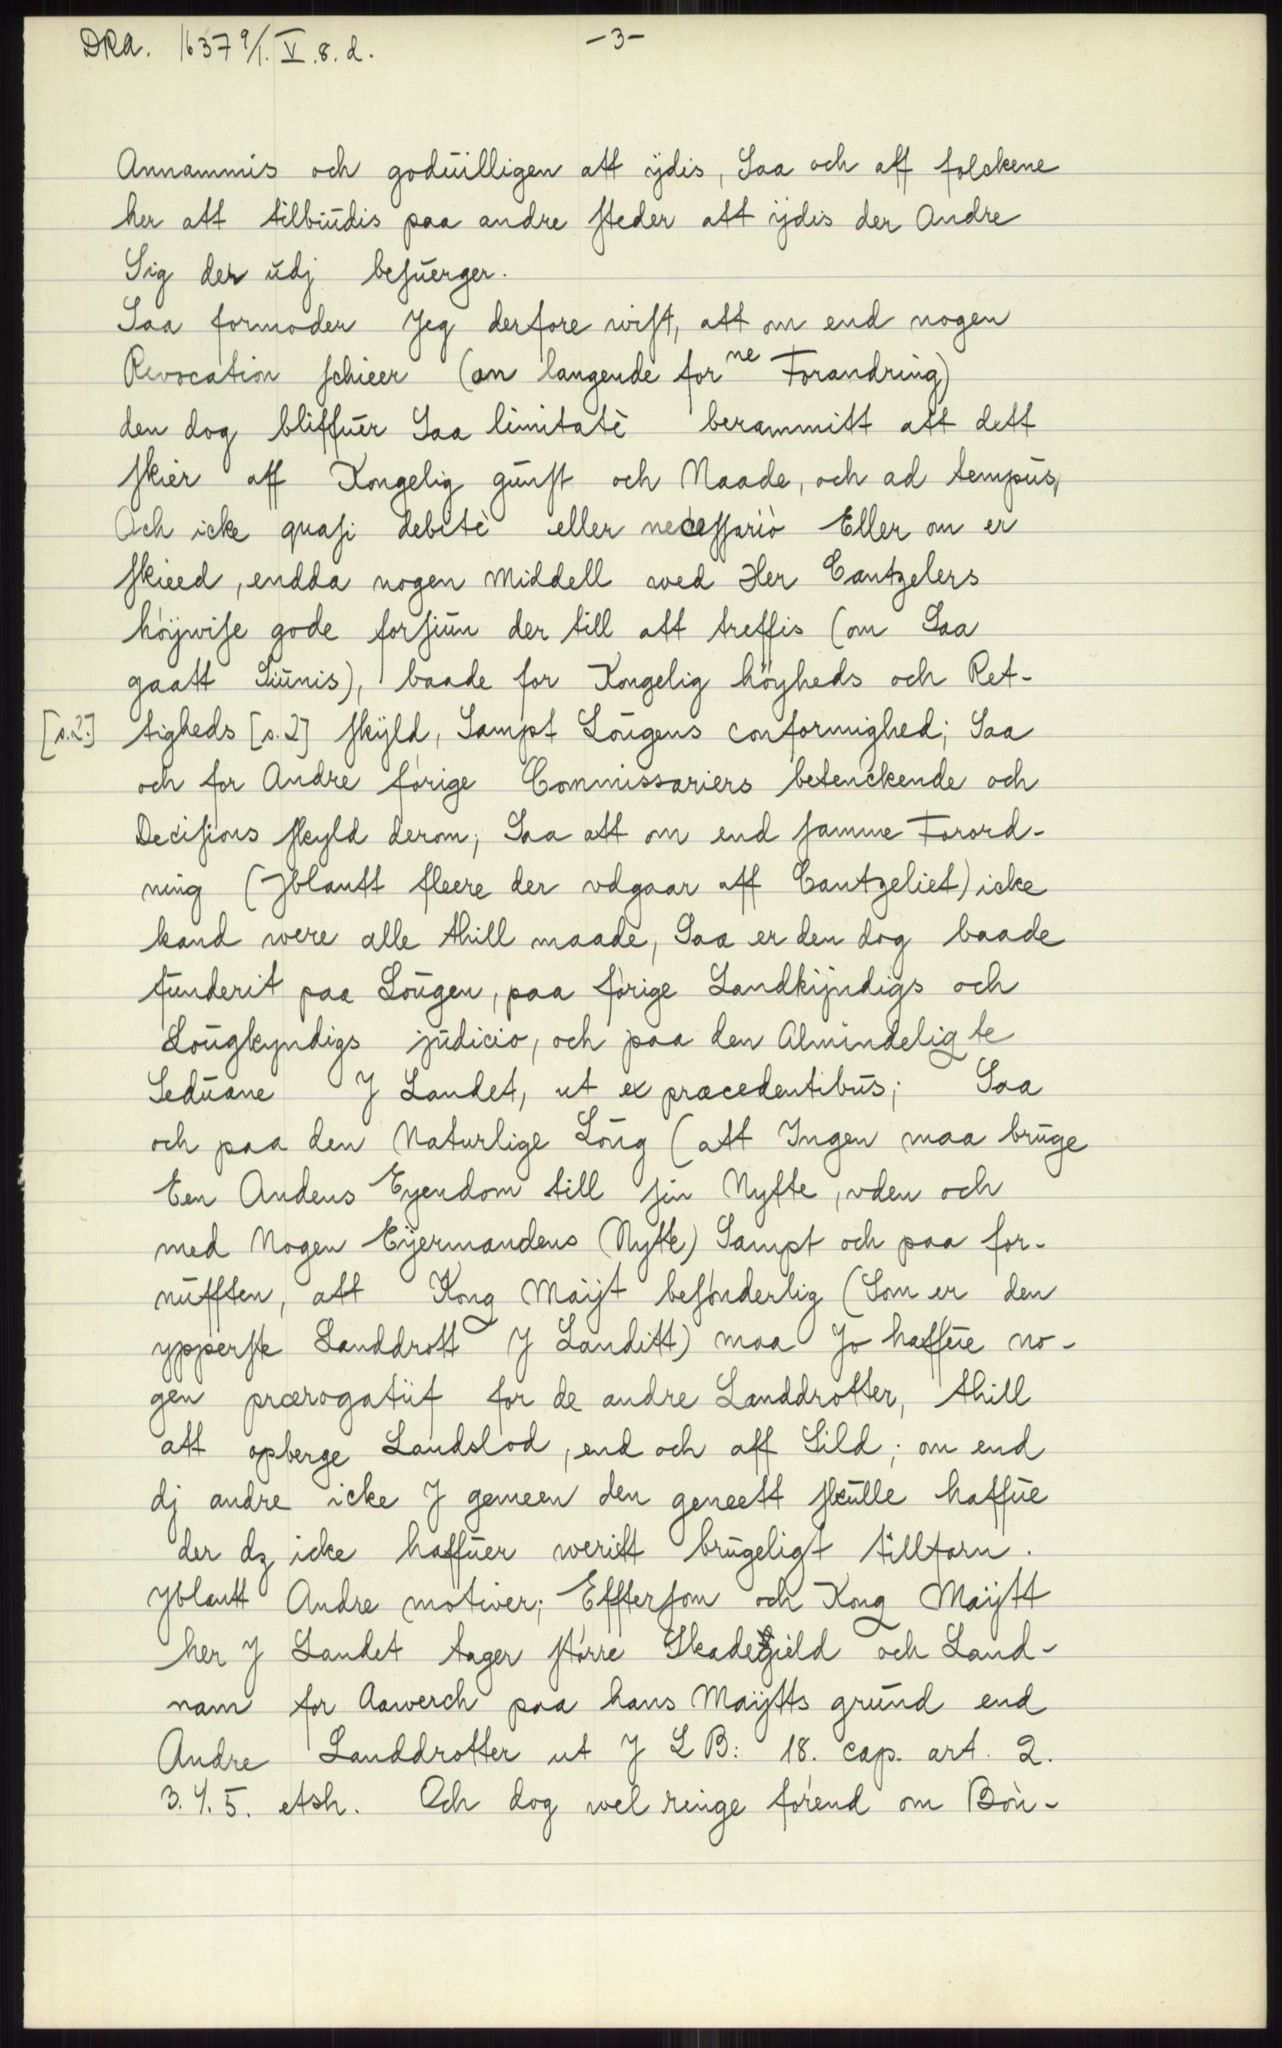 DRA. 1637 9/1. V. 8. d.
-3-
Annammis och godüilligen att ÿdis, Saa och aff folckene
her att tilbiüdis paa andre steder att ÿdis der Andre
Sig der üdj besuerger.
Saa formoder Jeg derfore wist, att om end nogen
Revocation schieer (an langende for ne Forandring)
den dog bliffuer Saa limitatè berammitt att dett
skier aff Kongelig günst och Naade, och ad tempus,
Och icke quasi debitè eller necessariò Eller om er
skieed, endda nogen Middell wed Her Cantzelers
höÿwise gode forsiün der till att treffis (om Saa
gaatt Siünis), baade for Kongelig höÿheds och Ret-
[s.2.] tigheds [s.2] skÿld, Sampt Lougens conformighed; Saa
och for Andre forige Commissariers betenckende och
Decisions skyld derom; Saa att om end samme Forord-
ning (Jblantt fleere der vdgaar aff Cantzeliet) icke
kand were alle thill maade, Saa er den dog baade
funderit paa Lougen, paa forige Landkÿndigs och
Lougkyndigs judicio, och paa den Almindeligte
Seduane J Landet, ut ex præcedentibus; Saa
och paa den Naturlige Loug (att Ingen maa bruge
Een Andens Eyendom till sin Nytte, vden och
med Nogen Eÿermandens (Nytte) Sampt och paa for-
nufften, att Kong Maÿt besonderlig (Som er den
ypperste Landdrott J Landitt) maa Jo haffue no-
gen prærogatiif for de andre Landdrotter, thill
att opberge Landslod, end och aff Sild; om end
dj andre icke J gemeen den geneett skulle haffue
der dz icke haffuer weritt brugeligt tillforn.
Jblantt Andre motiver; Effterson och Kong Maÿtt
her J Landet tager större Skadegield och Land-
nam for Aawerch paa hans Maÿtts grund end
Andre Landdrotter ut J L B: 18. cap. art. 2.
3. 4. 5. etsh. Och dog wel ringe förend om Bön-